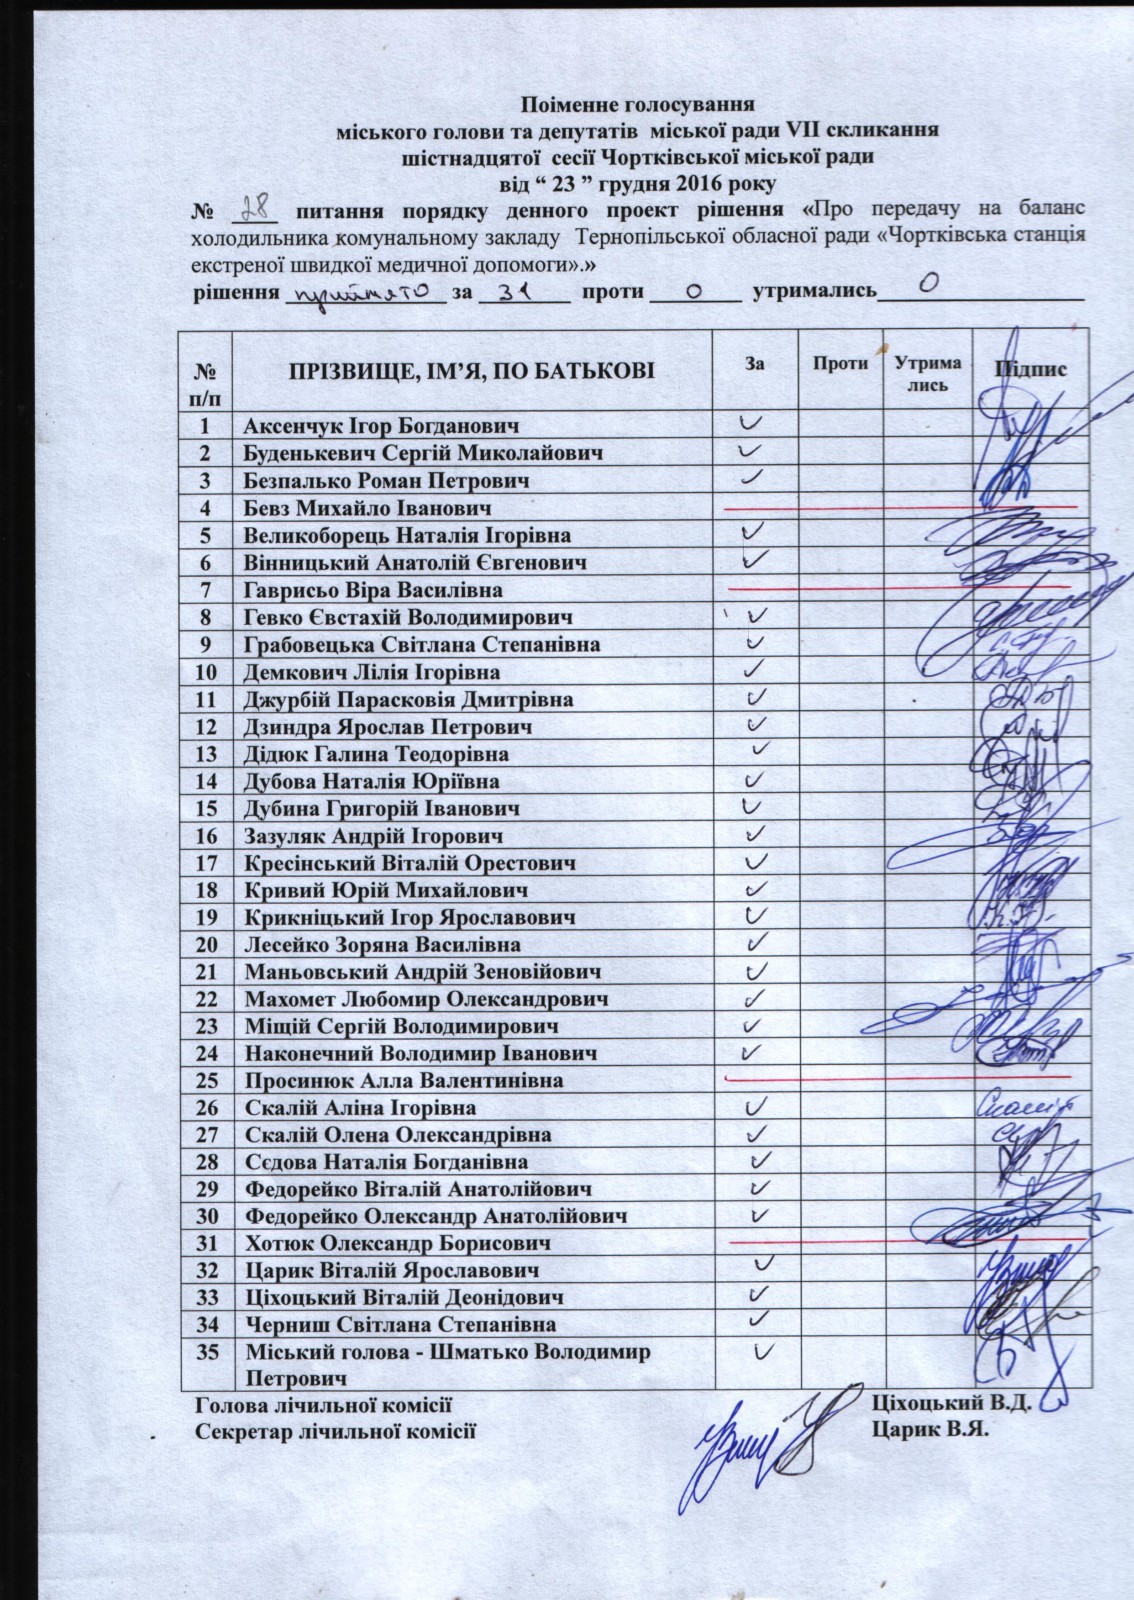 Поіменне голосування
міського голови та депутатів міської ради VII скликання
шістнадцятої сесії Чортківської міської ради
від “ 23 ” грудня 2016 року
№ 28 питання порядку денного проект рішення «Про передачу на баланс
холодильника комунальному закладу Тернопільської обласної ради «Чортківська станція
екстреної швидкої медичної допомоги».»
рішення прийнято за 31 проти 0 утримались 0
№ п/п ПРІЗВИЩЕ, ІМ’Я, ПО БАТЬКОВІ За Проти Утрима лись Підпис
1 Аксенчук Ігор Богданович
2 Буденькевич Сергій Миколайович
3 Безпалько Роман Петрович
4 Бевз Михайло Іванович
5 Великоборець Наталія Ігорівна
6 Вінницький Анатолій Євгенович
7 Гаврисьо Віра Василівна
8 Гевко Євстахій Володимирович
9 Грабовецька Світлана Степанівна
10 Демкович Лілія Ігорівна
11 Джурбій Парасковія Дмитрівна
12 Дзиндра Ярослав Петрович
13 Дідюк Галина Теодорівна
14 Дубова Наталія Юріївна
15 Дубина Григорій Іванович
16 Зазуляк Андрій Ігорович
17 Кресінський Віталій Орестович
18 Кривий Юрій Михайлович
19 Крикніцький Ігор Ярославович
20 Лесейко Зоряна Василівна
21 Маньовський Андрій Зеновійович
22 Махомет Любомир Олександрович
23 Міщій Сергій Володимирович
24 Наконечний Володимир Іванович
25 Просинюк Алла Валентинівна
26 Скалій Аліна Ігорівна
27 Скалій Олена Олександрівна
28 Сєдова Наталія Богданівна
29 Федорейко Віталій Анатолійович
30 Федорейко Олександр Анатолійович
31 Хотюк Олександр Борисович
32 Царик Віталій Ярославович
33 Ціхоцький Віталій Деонідович
34 Черниш Світлана Степанівна
35 Міський голова - Шматько Володимир
Петрович
Голова лічильної комісії Ціхоцький В.Д.
Секретар лічильної комісії Царик В.Я.